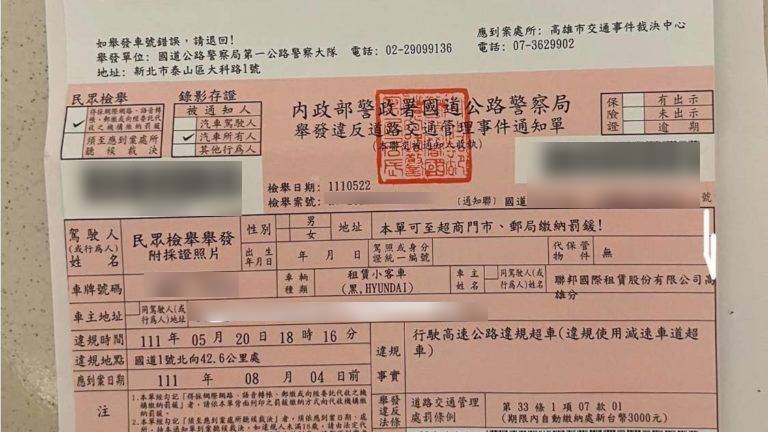 如舉發車號錯誤，請退回！
應到案處所：高雄市交通事件裁決中心
舉發單位：國道公路警察局第一公路警察大隊 電話：02-29099136
電話：07-3629902
地址：新北市泰山區大科路1號
民眾檢舉 錄影存證
得採網際網路、語音轉帳、郵繳或向經委託代收之機構繳納罰鍰
須至應到案處所聽候裁決
被通知人
汽車駕駛人
汽車所有人
其他行為人
內政部警政署國道公路警察局
舉發違反道路交通管理事件通知單
保險證
有出示
未出示
逾期
檢舉日期：1110522
檢舉案號：
(通知聯) 國道
號
駕駛人(或行為人)姓名
民眾檢舉舉發
附採證照片
性別 男 女
地址 本單可至超商門市、郵局繳納罰鍰!
出生年月日 年 月 日
駕照或身分證統一編號
代保管物件 無
車牌號碼
車輛種類
租賃小客車
(黑,HYUNDAI)
車主姓名
同駕駛人(或行為人)姓名
聯邦國際租賃股份有限公司高雄分
車主地址
同駕駛人(或行為人)地址
違規時間 111 年 05 月 20 日 18 時 16 分
違規地點 國道1號北向42.6公里處
應到案日期 111 年 08 月 04 日前
違規事實
行駛高速公路違規超車(違規使用減速車道超車)
舉發違反法條
道路交通管理處罰條例
第 33 條 1 項 07 款 01
(期限內自動繳納處新台幣3000元)
注